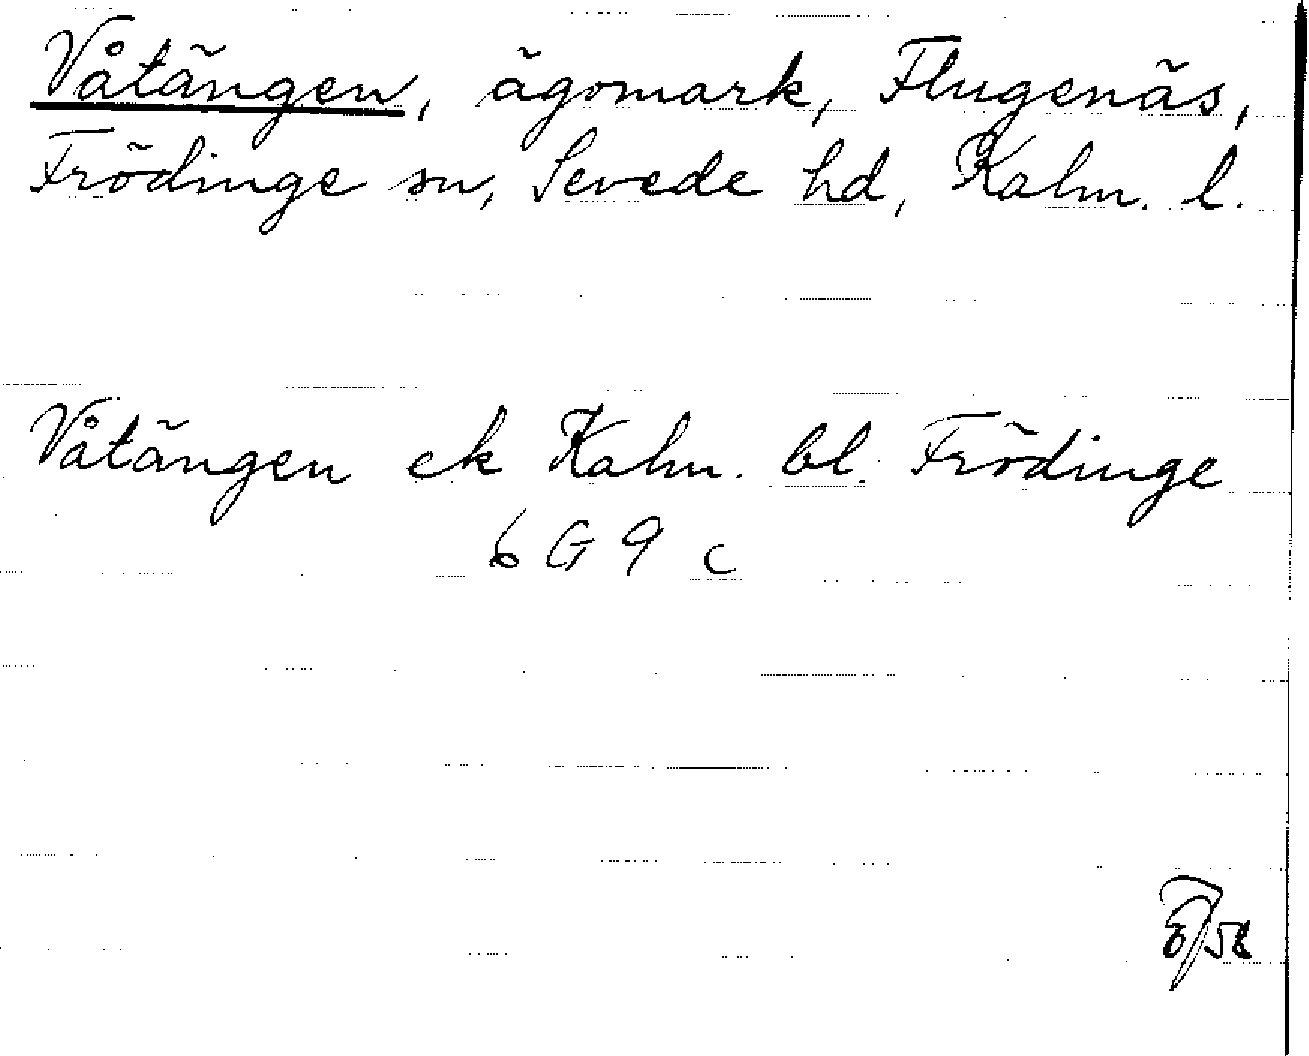 Våtängen, ägomark, Flugenäs,
Frödinge sn, Sevede hd, Kalm. l.
Våtängen ek Kalm. bl. Frödinge
6 G 9 c